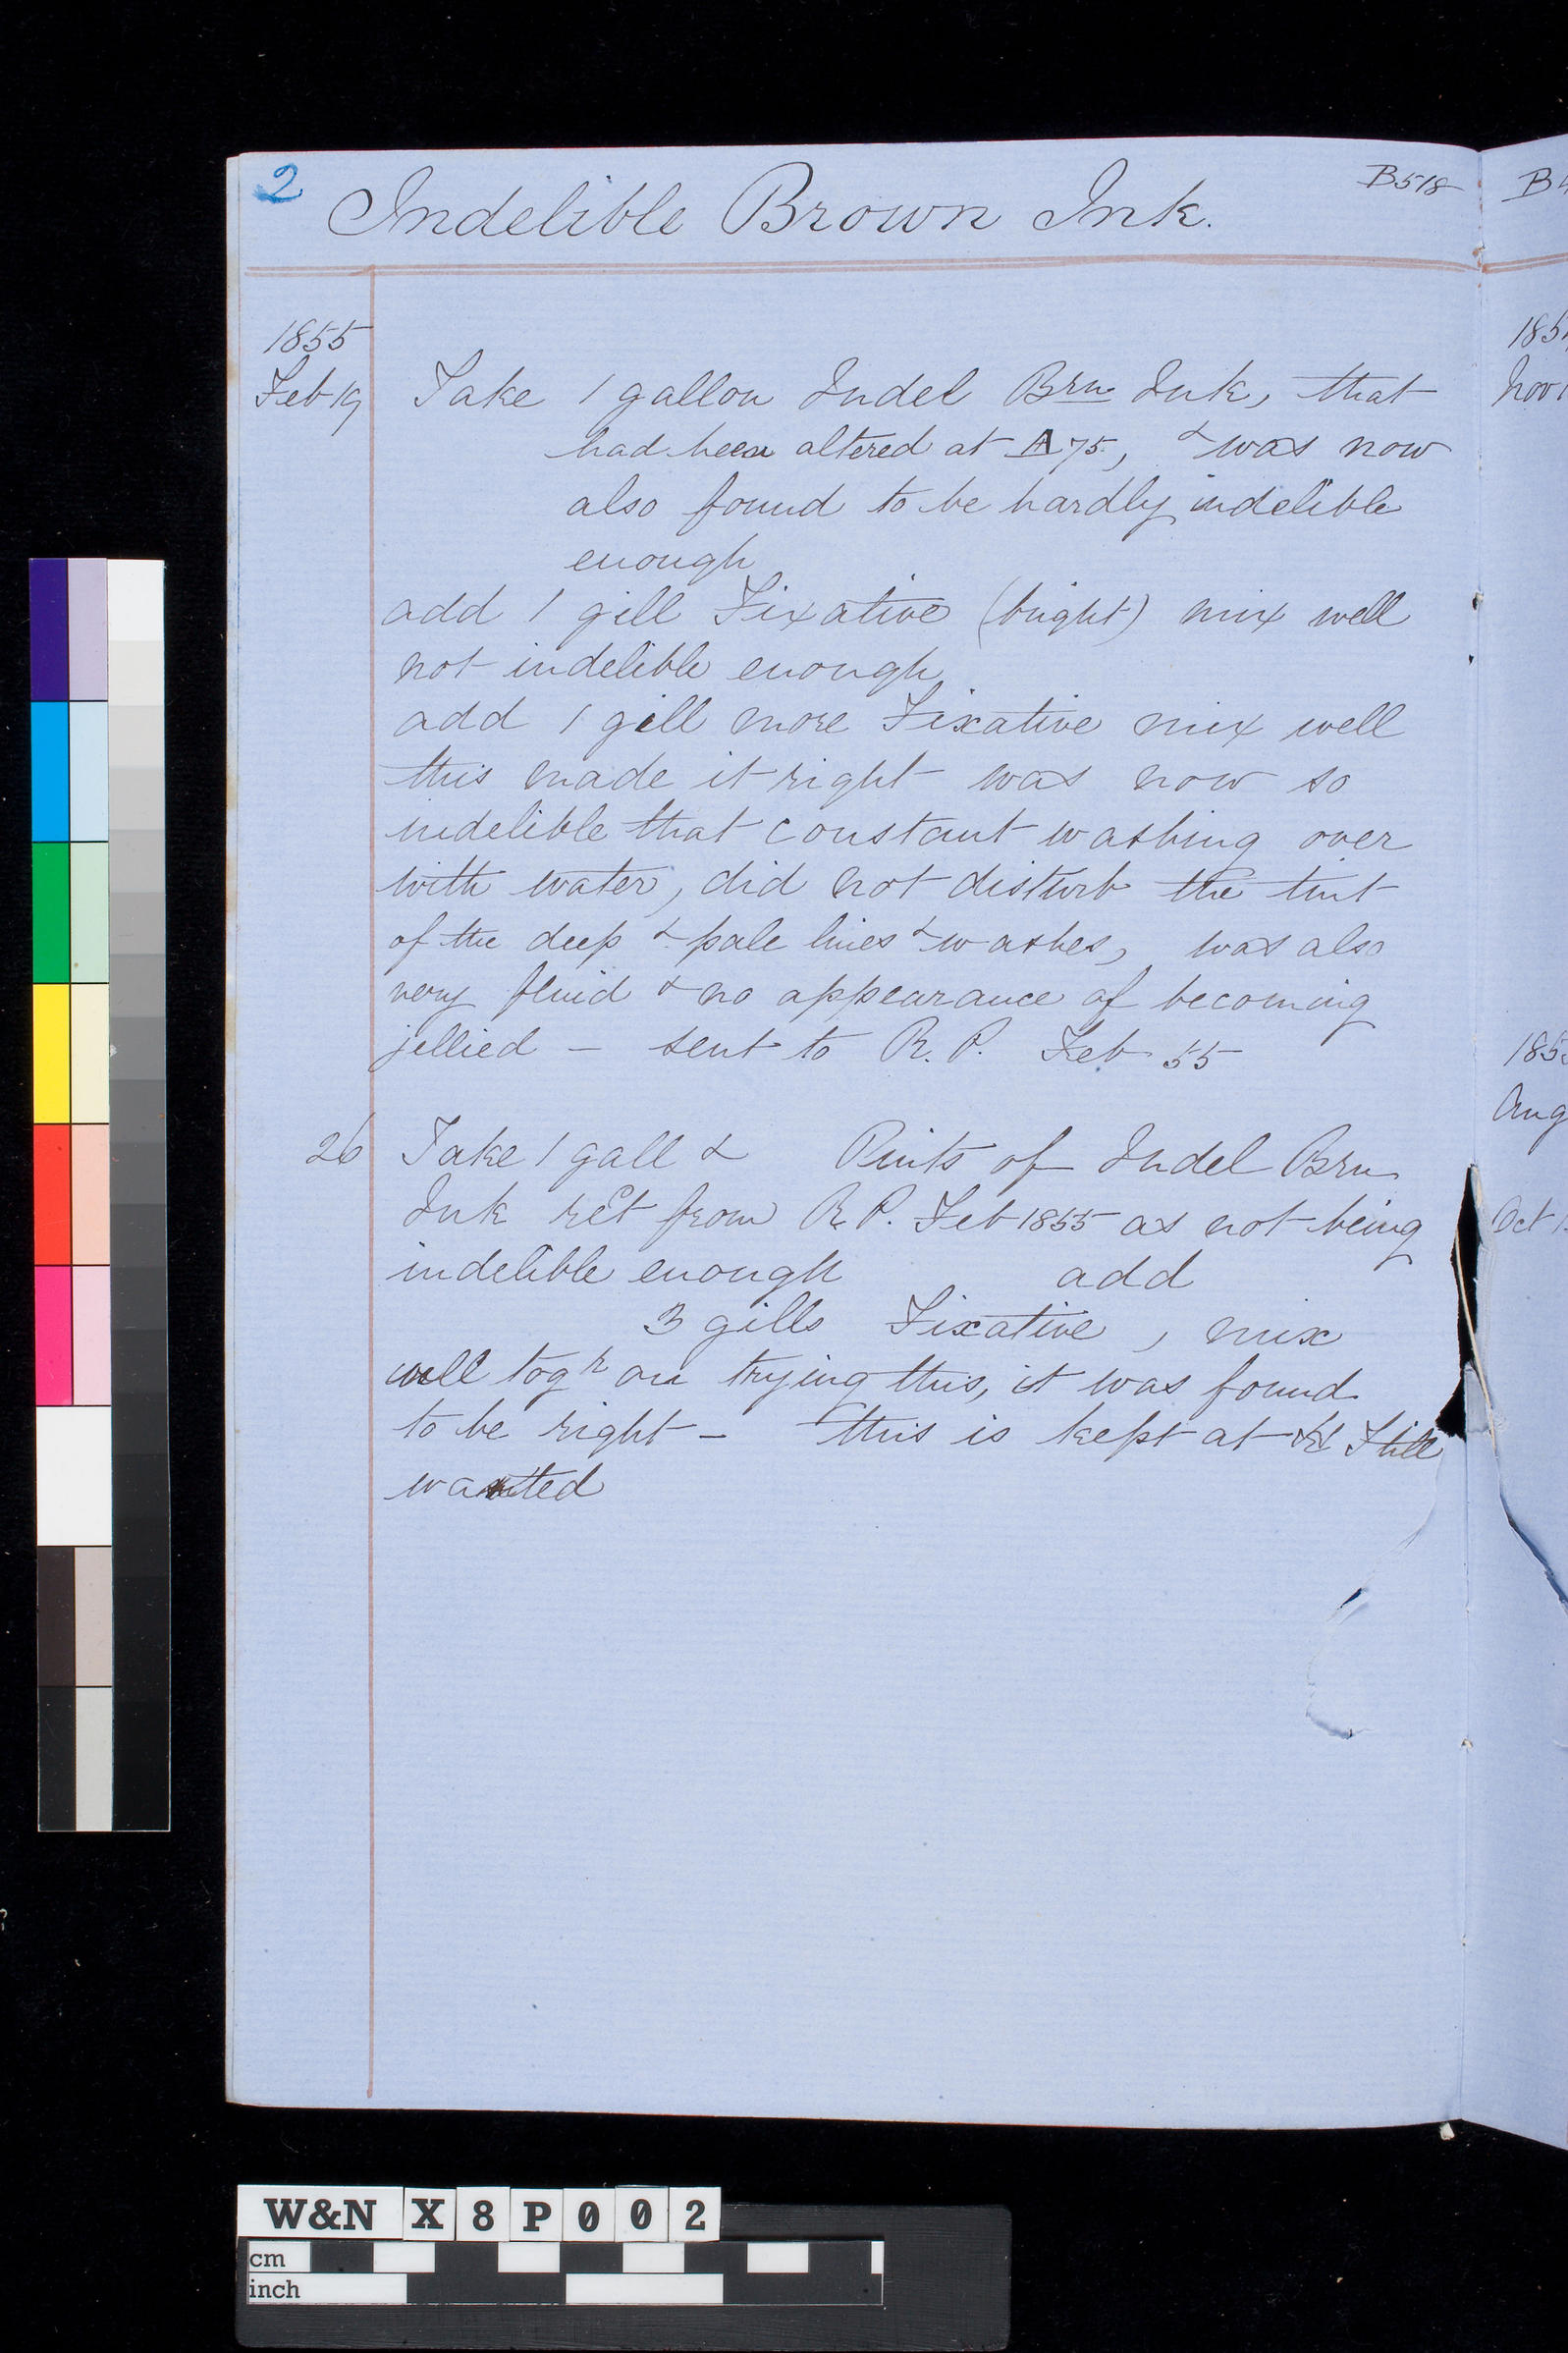 2
Indelible Brown Ink.
B518
1855
Feb 19 Take 1 gallon Indel Brn Ink, that
had been altered at A75, & was now
also found to be hardly indelible
enough
add 1 gill Fixative (bright) mix well
not indelible enough
add 1 gill more Fixative mix well
this made it right was now so
indelible that constant washing over
with water, did not disturb the tint
of the deep & pale lines & washes, was also
very fluid & no appearance of becoming
jellied – sent to R.P. Feb 55
26 Take 1 gall & Pints of Indel Brn
Ink ret from R P. Feb 1855 as not being
indelible enough add
3 gills Fixative, mix
well togr on trying this, it was found
to be right – this is kept at till
wanted
185
Nov 1
185
Aug
Oct 1
W&N X8P002
cm
inch